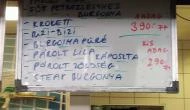 SÓS PETREZSELYMES
BURGONYA
- KROKETT
- RIZI-BIZI
- BURGONYAPÜRÉ
- PÁROLT LILA KÁPOSZTA
- PÁROLT ZÖLDSÉG
- STEAK BURGONYA
ADAG:
390.-
FT
KIS
ADAG:
290.-
FT